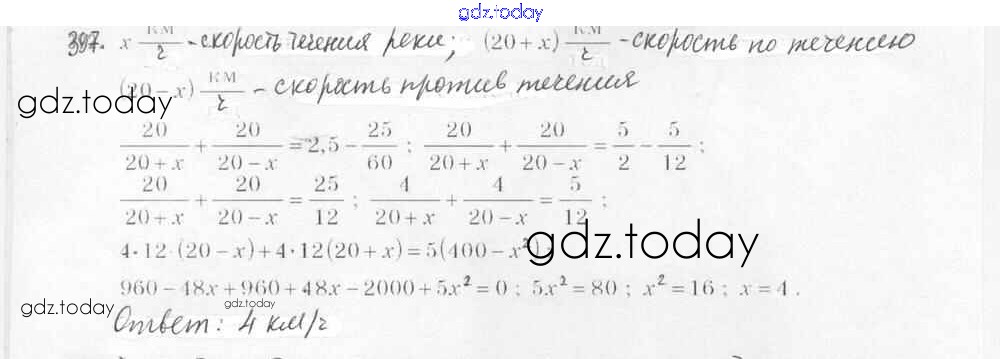 gdz.today
397. x км/ч - скорость течения реки; (20 + x) км/ч - скорость по течению
(20 - x) км/ч - скорость против течения
gdz.today
20/(20 + x) + 20/(20 - x) = 2,5 - 25/60 ; 20/(20 + x) + 20/(20 - x) = 5/2 - 5/12 ;
20/(20 + x) + 20/(20 - x) = 25/12 ; 4/(20 + x) + 4/(20 - x) = 5/12 ;
gdz.today
4·12·(20 - x) + 4·12(20 + x) = 5(400 - x²)
960 - 48x + 960 + 48x - 2000 + 5x² = 0 ; 5x² = 80 ; x² = 16 ; x = 4 .
gdz.today
gdz.today
Ответ: 4 км/ч